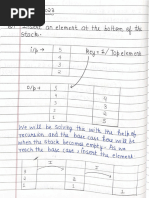 2023
Q. Insert an element at the bottom of the
stack.
i/p →
5
4
3
2
key = 1 / Top element
O/p →
5
4
3
2
1
We will be solving this with the help of
recursion and the base case here will be
when the stack becomes empty. As we
reach the base case insert the element